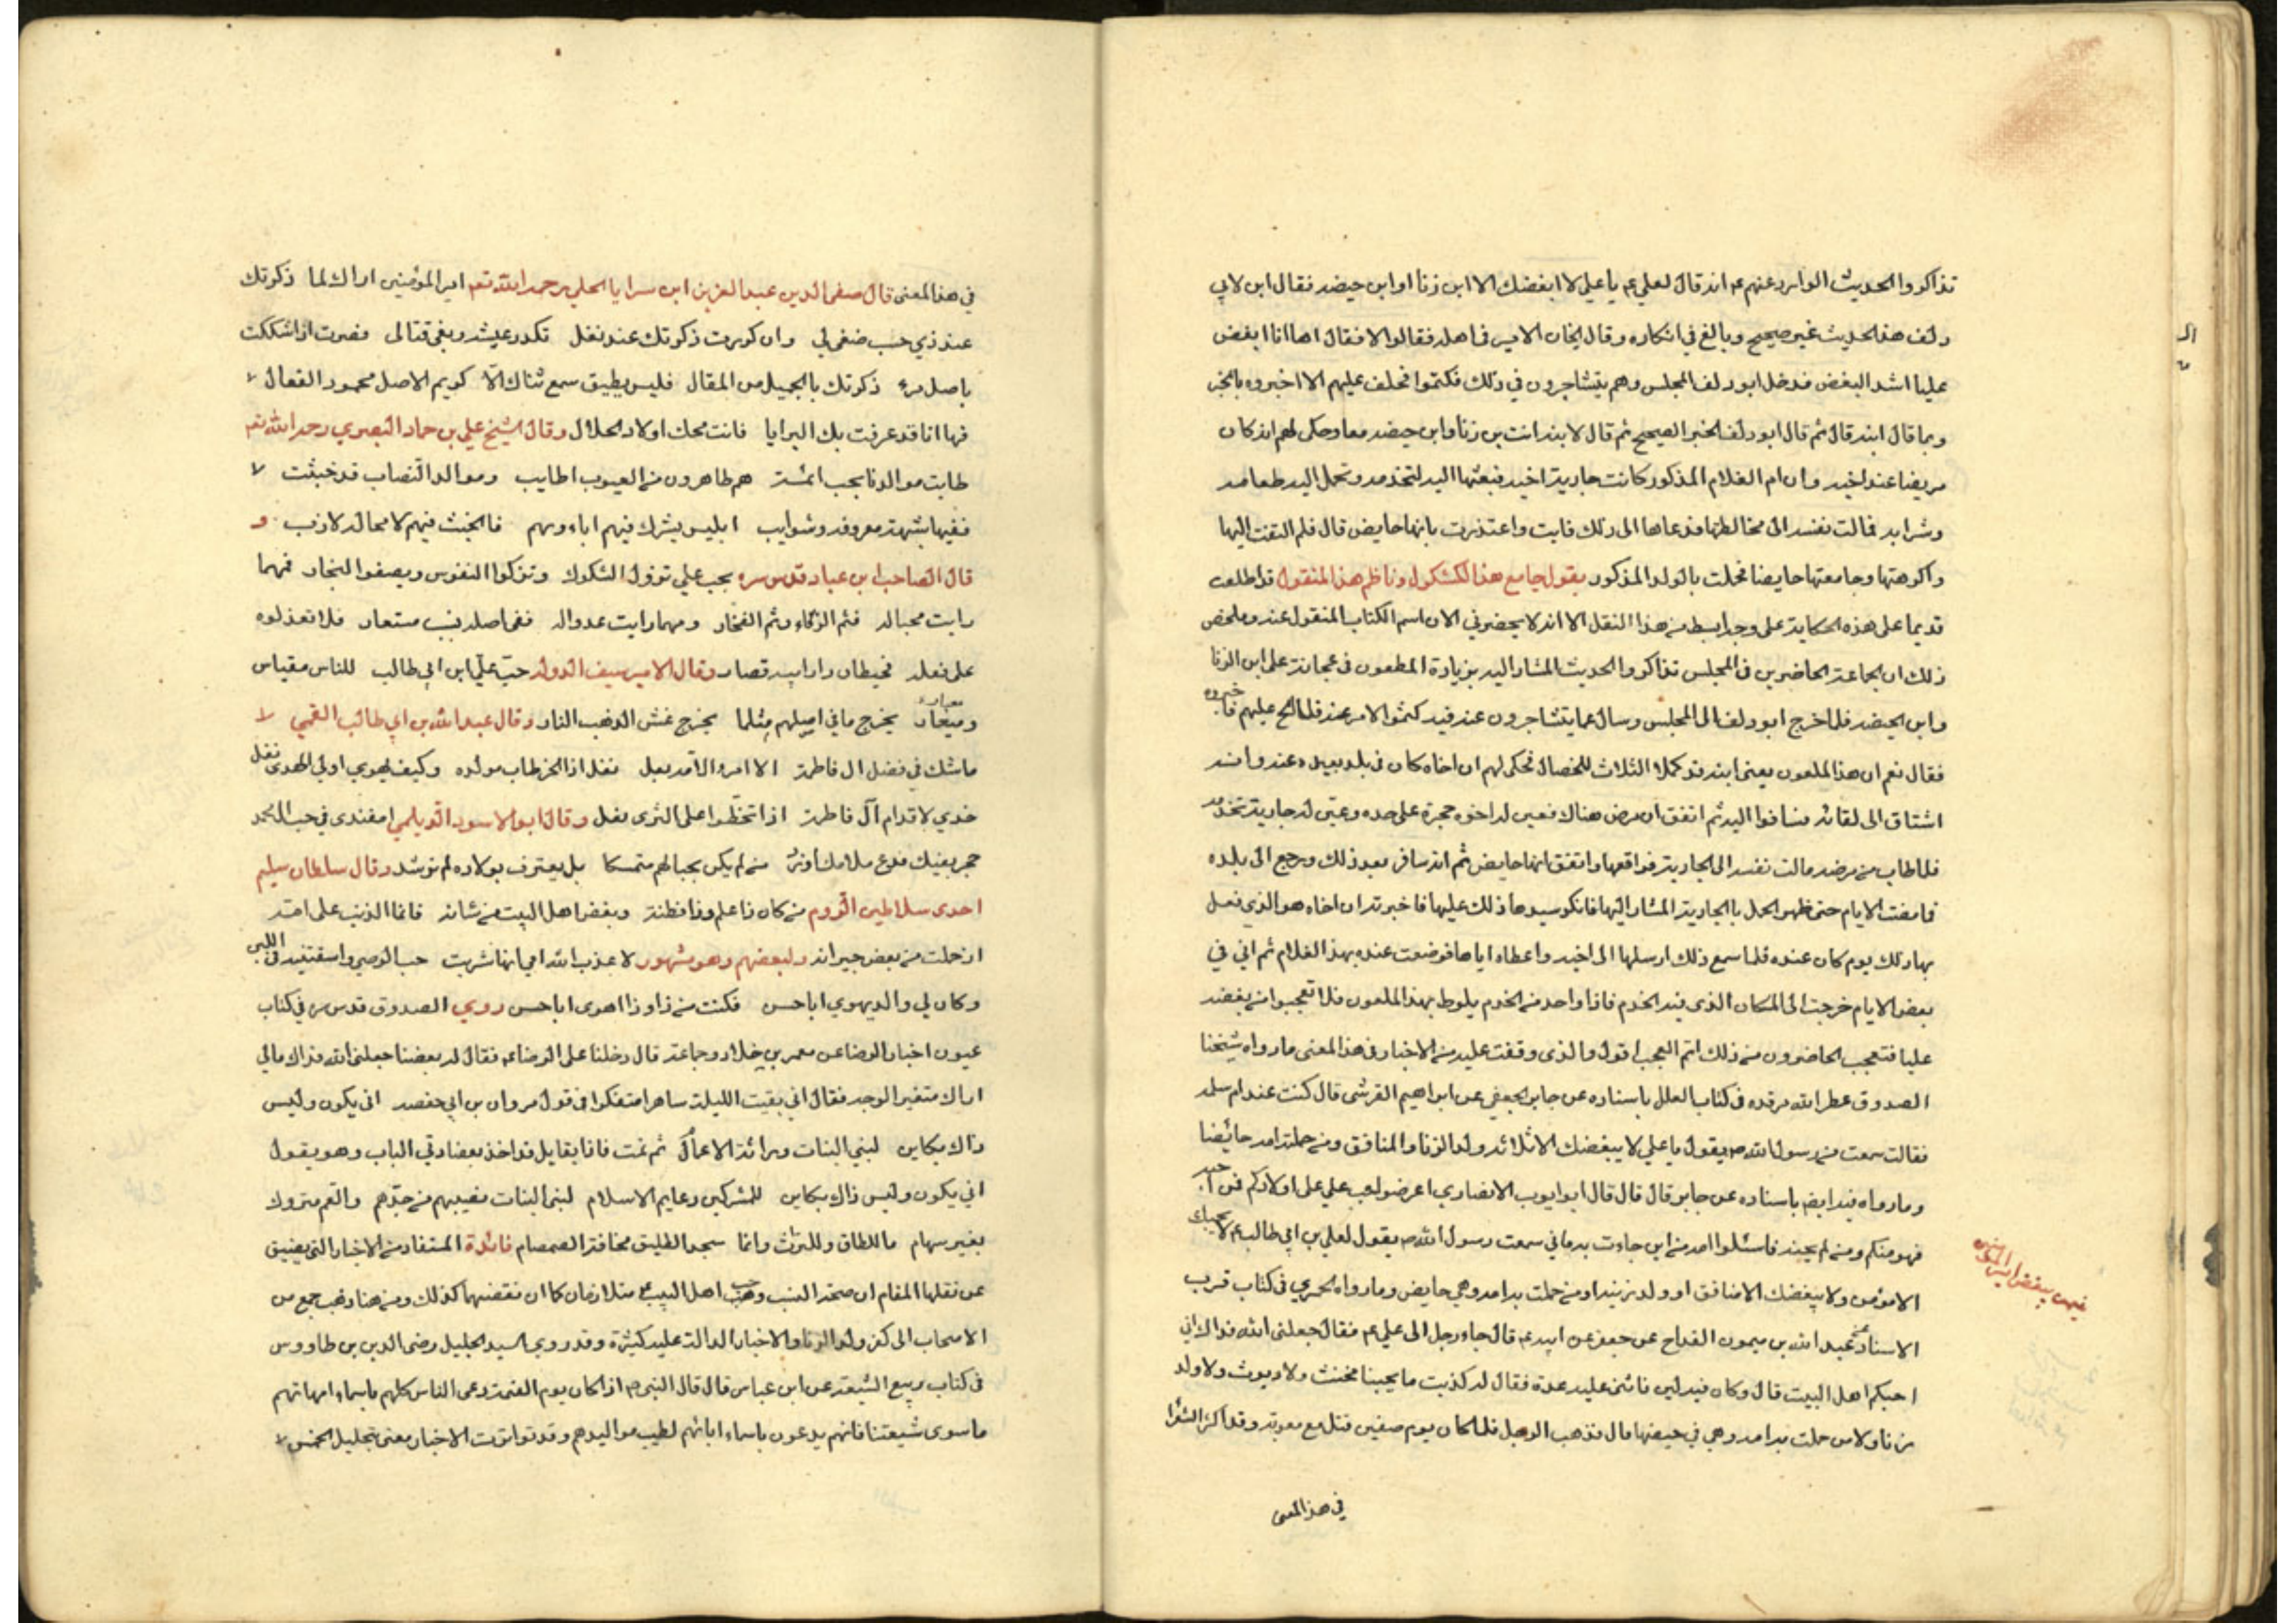 تذاكروا الحديث الوارد عنهم عم انه قال لعلي عم يا علي لا ابغضك الا ابن زنا او ابن حيضه فقال ابن لابي
دلف هذا الحديث غير صحيح وبالغ في انكاره وقال ايخان الامير في اهله فقالوا لا فقال اها انا ابغض
عليا اشد البغض فدخل ابو دلف المجلس وهم يتشاجرون في ذلك فكتموا فحلف عليهم الا اخبروه بالخبر
وبما قال ابنه قال ثم قال ابو دلف الخبر الصحيح ثم قال لابنه انت بن زنا وابن حيضه معا وحكى لهم انه كان
مريضا عند اخيه وان ام الغلام المذكور كانت جارية اخيه فبعثها اليه لتخدمه وتحمل اليه طعامه
وشرابه فمالت نفسه الى مخالطتها فدعاها الى ذلك فابت واعتذرت بانها حايض قال فلم التفت اليها
واكرهتها وجامعتها حايضا فحملت بالولد المذكور يقول جامع هذا الكشكول وناظم هذا المنقول قد اطلعت
قديما على هذه الحكاية على وجه ابسط من هذا النقل الا انه لا يحضرني الان اسم الكتاب المنقول عنه وملخص
ذلك ان الجماعة الحاضرين في المجلس تذاكروا الحديث المشار اليه بزيادة المطعون في عجانه على ابن الزنا
وابن الحيضه فلما خرج ابو دلف الى المجلس وسال عما يتشاجرون عنه فيه كتموا الامر عنه فلما الح عليهم فاخبروه
فقال نعم ان هذا الملعون يعني ابنه قد كملا الثلاث الخصال فحكى لهم ان اخاه كان في بلد بعيده عنه وانه
اشتاق الى لقائه فسافر اليه ثم اتفق ان مرض هناك فعين له اخوه حجرة على حده وعين له جارية تخدمه
فلما طاب من مرضه مالت نفسه الى الجارية فواقعها واتفق انها حايض ثم انه سافر بعد ذلك ورجع الى بلده
فما مضت الايام حتى ظهر الحمل بالجارية المشار اليها فانكر سيدها ذلك عليها فاخبرته ان اخاه هو الذي فعل
بها ذلك يوم كان عنده فلما سمع ذلك ارسلها الى اخيه واعطاه اياها فوضعت عنده بهذا الغلام ثم اني في
بعض الايام خرجت الى المكان الذي فيه الخدم فاذا واحد من الخدم يلوط بهذا الملعون فلا تعجبوا من بغضه
عليا فتعجب الحاضرون من ذلك اتم العجب اقول والذي وقفت عليه من الاخبار في هذا المعنى ما رواه شيخنا
الصدوق عطر الله مرقده في كتاب العلل باسناده عن جابر الجعفي عن ابراهيم القرشي قال كنت عند ام سلمه
فقالت سمعت من رسول الله ص يقول يا علي لا يبغضك الا ثلاثه ولد الزنا والمنافق ومن حملته امه حائضا
وما رواه فيه ايضا باسناده عن جابر قال قال قال ابو ايوب الانصاري اعرضوا حب علي على اولادكم فمن احبه
فهو منكم ومن لم يحبه فاسئلوا امه من اين جاءت به فاني سمعت رسول الله ص يقول لعلي بن ابي طالب عم لا يحبك
الا مؤمن ولا يبغضك الا منافق او ولد زنيه او من حملت به امه وهي حايض وما رواه الحميري في كتاب قرب
الاسناد عن عبد الله بن ميمون القداح عن جعفر عن ابيه عم قال جاء رجل الى علي عم فقال جعلني الله فداك اني
احبكم اهل البيت قال وكان فيه لين فاثنى عليه عدة فقال له كذبت ما يحبنا مخنث ولا ديوث ولا ولد
زنا ولا من حملت به امه وهي في حيضها قال فذهب الرجل فلما كان يوم صفين قتل مع معوية وقد اكثر الشعرا
في هذا المعنى
فيمن يبغض امير المؤمنين
في هذا المعنى قال صفي الدين عبد العزيز ابن سرايا الحلي رحمه الله تعم امير المؤمنين اراك لما ذكرتك
عند ذي حسب صغى لي وان كررت ذكرتك عند نغل تكدر عيشه وبغى قتالي فصرت اذا شككت
باصل مرء ذكرتك بالجميل من المقال فليس يطيق سمع ثناك الا كريم الاصل محمود الفعال
فها انا قد عرفت بك البرايا فانت محك اولاد الحلال وقال الشيخ علي بن حماد البصري رحمه الله تعم
طابت موالدنا بحب ائمة هم طاهرون من العيوب اطايب وموالد النصاب قد خبثت
ففيها شبهة معروفه وشوايب ابليس يشرك فيهم اباءوهم فالخبث فيهم لا محاله لازب و
قال الصاحب ابن عباد قدس سره بحب علي تزول الشكوك وتزكوا النفوس ويصفوا النجار فمهما
رايت محبا له فثم الزكاء وثم الفخار ومهما رايت عدوا له ففي اصله نسب مستعار فلا تعذلوه
على فعله فحيطان دار ابيه قصار وقال الامير سيف الدوله حب علي ابن ابي طالب للناس مقياس
ومعيار يخرج ما في اصلهم مثلما يخرج غش الذهب النار وقال عبد الله بن ابي طالب القمي
ما شك في فضل ال فاطمة الا امرء لامه بعل نغل اذا الحر طاب مولده وكيف يهوي اولي الهدى نغل
خدي لاقدام آل فاطمة اذا تخطوا على الثرى نعل وقال ابو الاسود الدؤيلمي امفندي في حب ال محمد
حجر بفيك فدع ملامك او زد من لم يكن بحبالهم متمسكا بل يعترف بولاده لم ترشد وقال سلطان سليم
احدى سلاطين الروم من كان ذا علم وذا فطنة وبغض اهل البيت من شانه فانما الذنب على امه
اذ حملت من بعض جيرانه ولبعضهم وهو مشهور لا عذب الله امي انها شربت حب الوصي واسقتنيه في اللبن
وكان لي والد يهوي ابا حسن فكنت من ذا وذا اهوى ابا حسن روي الصدوق قدس سره في كتاب
عيون اخبار الرضا عن معمر بن خلاد وجماعة قال دخلنا على الرضا عم فقال له بعضنا جعلني الله فداك مالي
اراك متغير الوجه فقال اني بقيت الليلة ساهرا متفكرا في قول مروان بن ابي حفصه انى يكون وليس
ذاك بكاين لبني البنات وراثة الاعمام ثم نمت فاذا بقايل قد اخذ بعضادتي الباب وهو يقول
انى يكون وليس ذاك بكاين للمشركين دعايم الاسلام لبني البنات نصيبهم من جدهم والعم متروك
بغير سهام ما للطاق وللتراث وانما سجد الطليق مخافة الصمصام فائدة المستفاد من الاخبار التي يضيق
عن نقلها المقام ان صحة النسب وحب اهل البيت عم متلازمان كما ان نقضيهما كذلك ومن هنا ذهب جمع من
الاصحاب الى كفر ولد الزنا والاخبار الدالة عليه كثيرة وقد روي السيد الجليل رضي الدين بن طاووس
في كتاب ربيع الشيعة عن ابن عباس قال قال النبي ص اذا كان يوم القيمة دعى الناس كلهم باسماء امهاتهم
ما سوى شيعتنا فانهم يدعون باسماء ابائهم لطيب مواليدهم وقد تواترت الاخبار معنى بتحليل الخمس